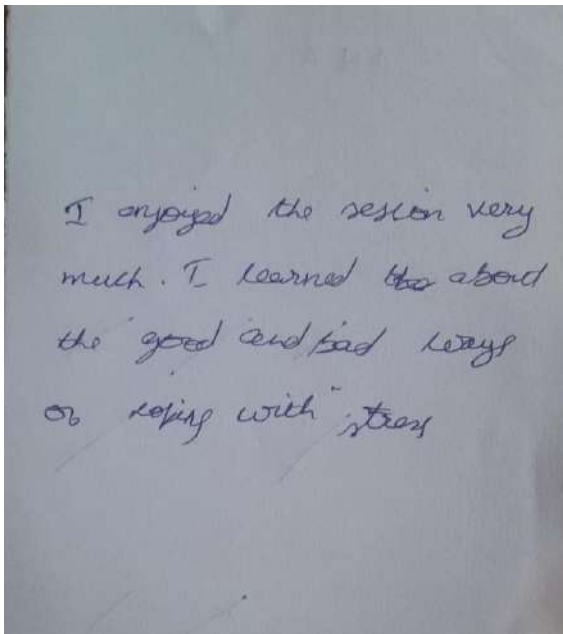 I enjoyed the session very
much. I learned about
the good and bad ways
of coping with stress